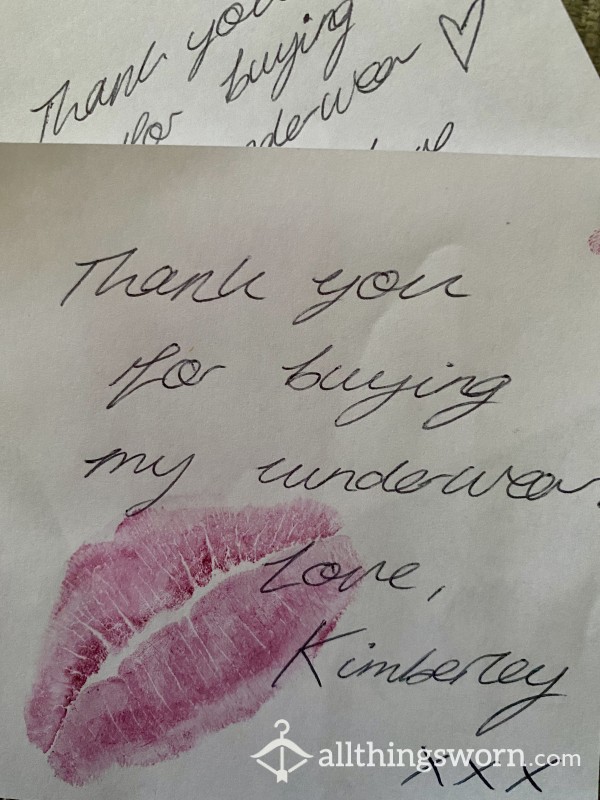 Thank you
for buying
underwear
Thank you
for buying
my underwear.
Love,
Kimberley
xxx
allthingsworn.com